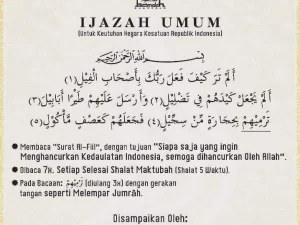 IJAZAH UMUM
(Untuk Keutuhan Negara Kesatuan Republik Indonesia)
بِسْمِ اللَّهِ الرَّحْمَنِ الرَّحِيمِ
أَلَمْ تَرَ كَيْفَ فَعَلَ رَبُّكَ بِأَصْحَابِ الْفِيْلِ (١)
أَلَمْ يَجْعَلْ كَيْدَهُمْ فِي تَضْلِيْلٍ (٢) وَأَرْسَلَ عَلَيْهِمْ طَيْرًا أَبَابِيْلَ (٣)
تَرْمِيْهِمْ بِحِجَارَةٍ مِنْ سِجِّيْلٍ (٤) فَجَعَلَهُمْ كَعَصْفٍ مَّأْكُوْلٍ (٥)
● Membaca "Surat Al-Fiil", dengan tujuan "Siapa saja yang ingin
Menghancurkan Kedaulatan Indonesia, semoga dihancurkan Oleh Allah".
● Dibaca 7x. Setiap Selesai Shalat Maktubah (Shalat 5 Waktu).
● Pada Bacaan: تَرْمِيْهِمْ (diulang 3x) dengan gerakan
tangan seperti Melempar Jumrah.
Disampaikan Oleh: